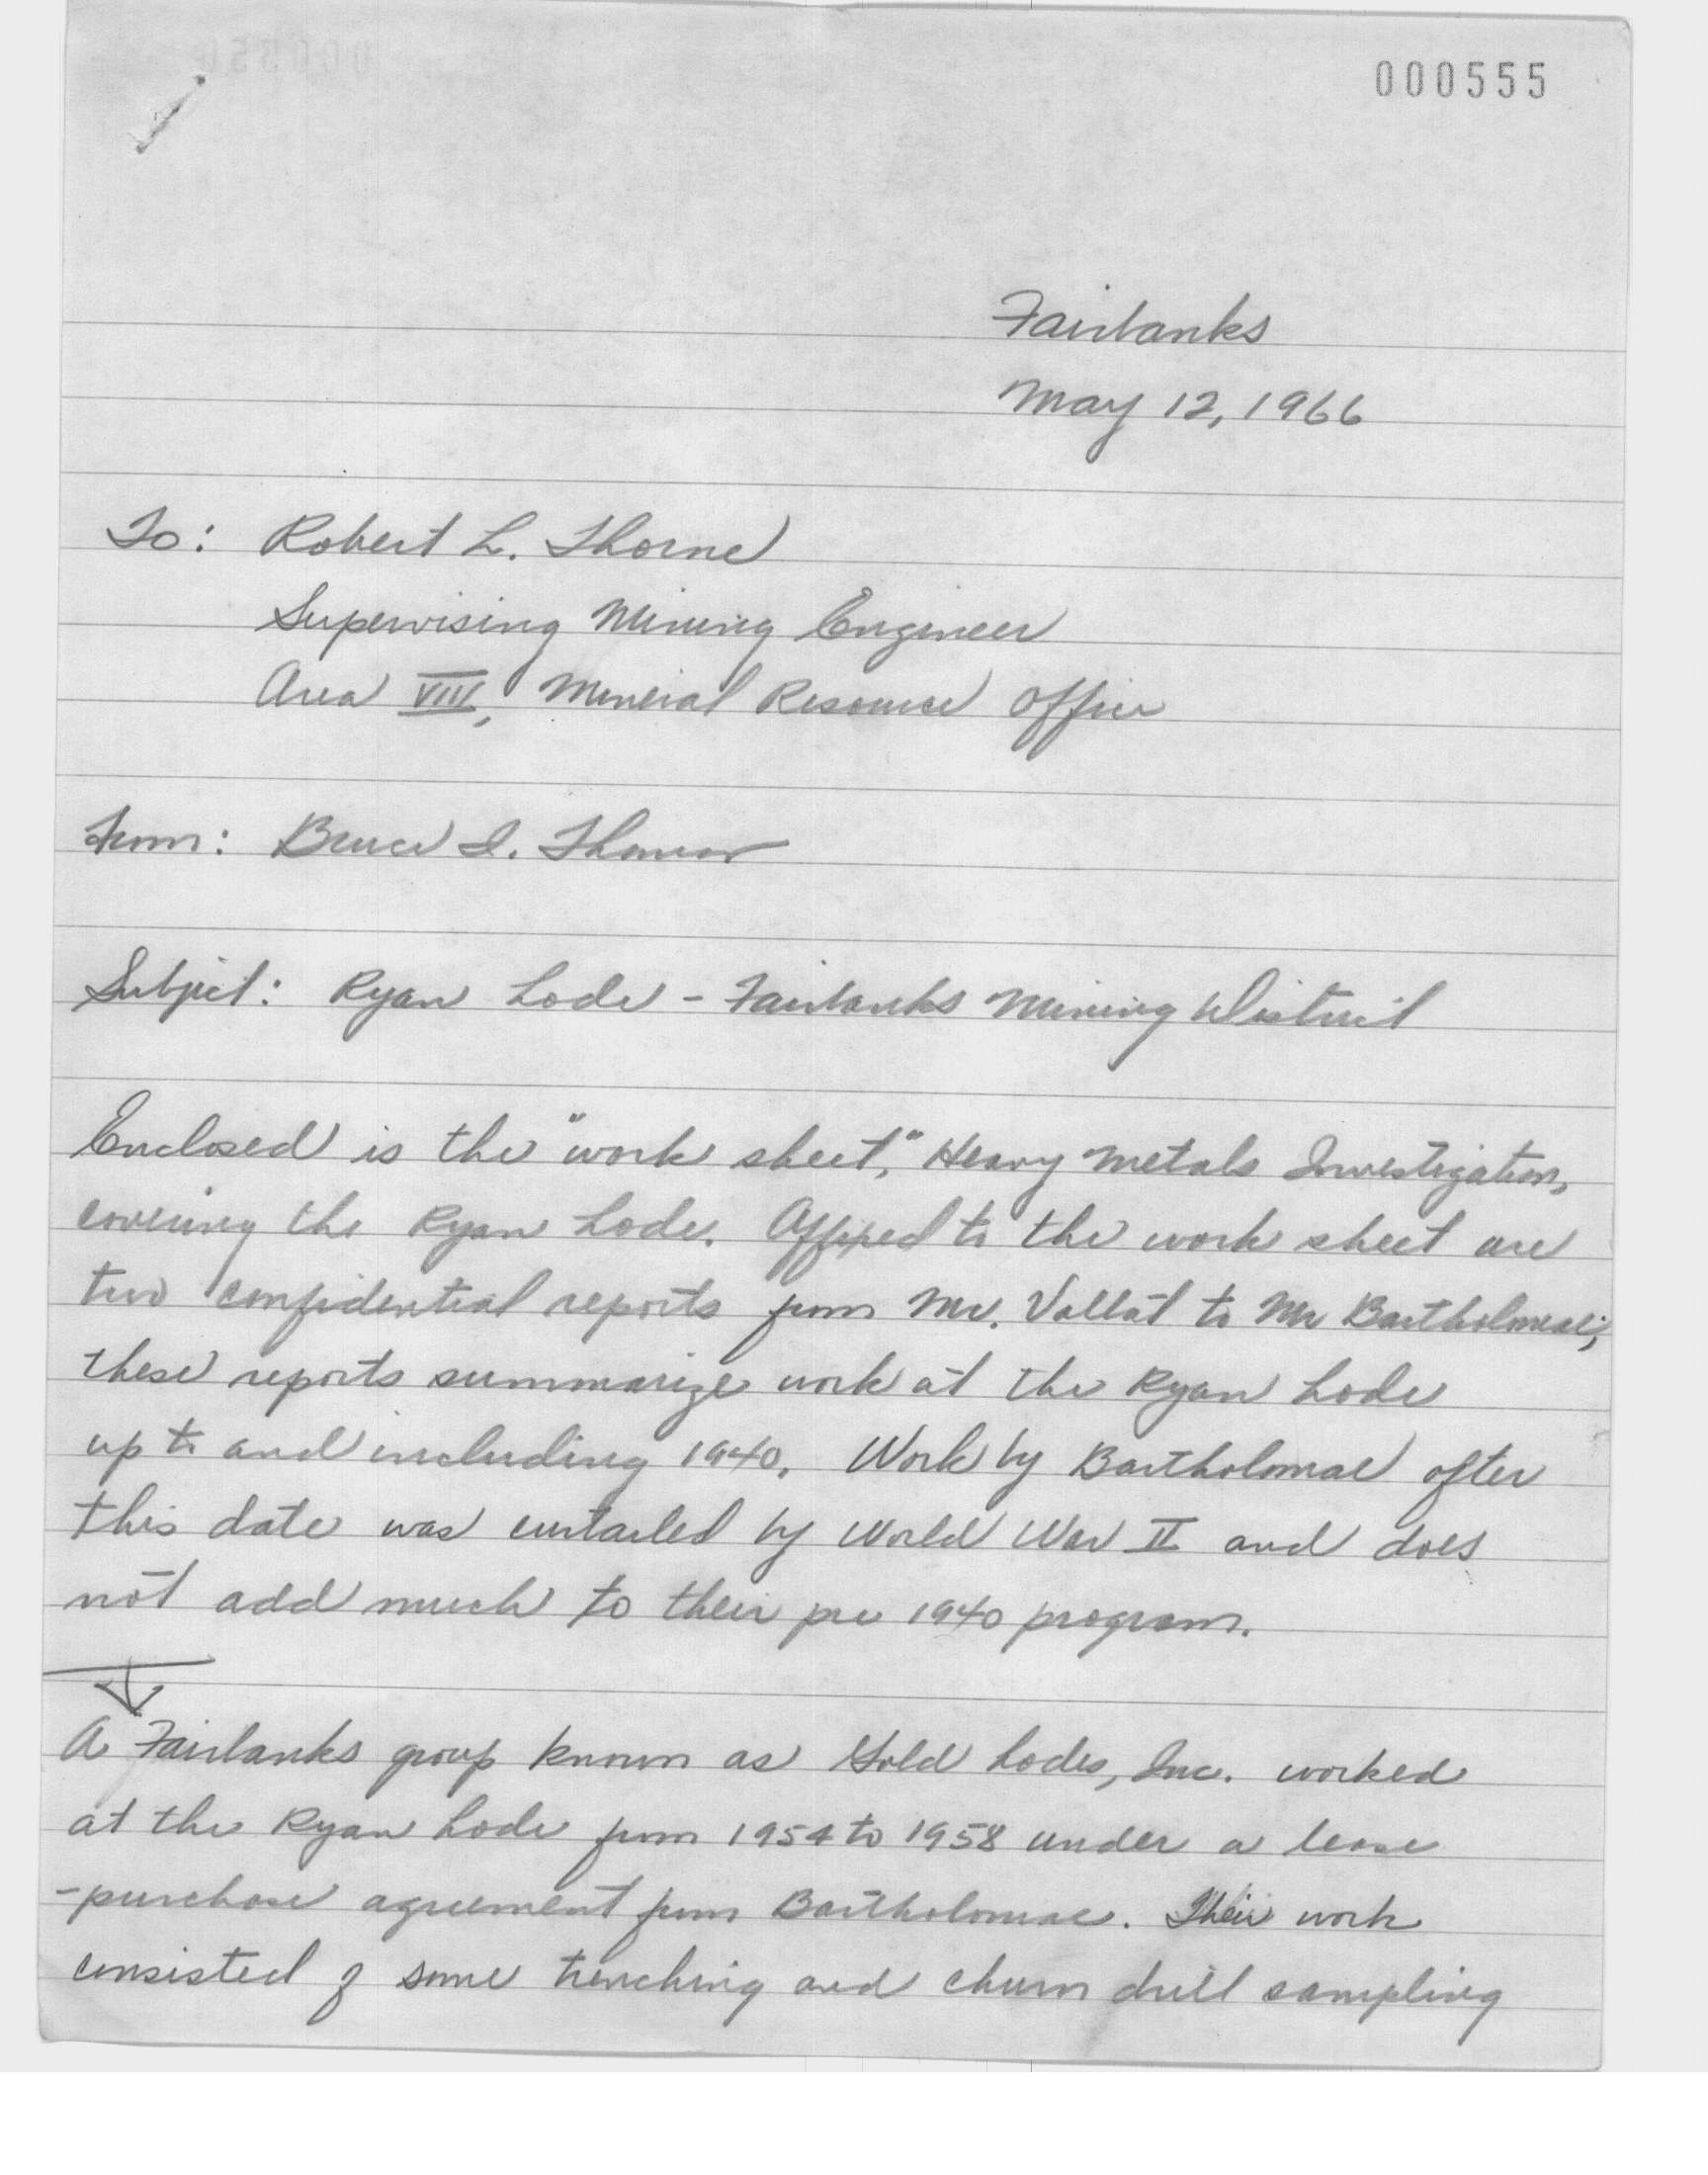 000555
Fairbanks
May 12, 1966
To: Robert L. Thorne
Supervising Mining Engineer
Area VIII, Mineral Resource Office
From: Bruce I. Thomas
Subject: Ryan Lode - Fairbanks Mining District
Enclosed is the "work sheet," Heavy Metals Investigation,
covering the Ryan Lode. Affixed to the work sheet are
two confidential reports from Mr. Vallat to Mr Bartholomae;
these reports summarize work at the Ryan Lode
up to and including 1940. Work by Bartholomae after
this date was curtailed by World War II and does
not add much to their pre 1940 program.
A Fairbanks group known as Gold Lodes, Inc. worked
at the Ryan Lode from 1954 to 1958 under a lease
-purchase agreement from Bartholomae. Their work
consisted of some trenching and churn drill sampling